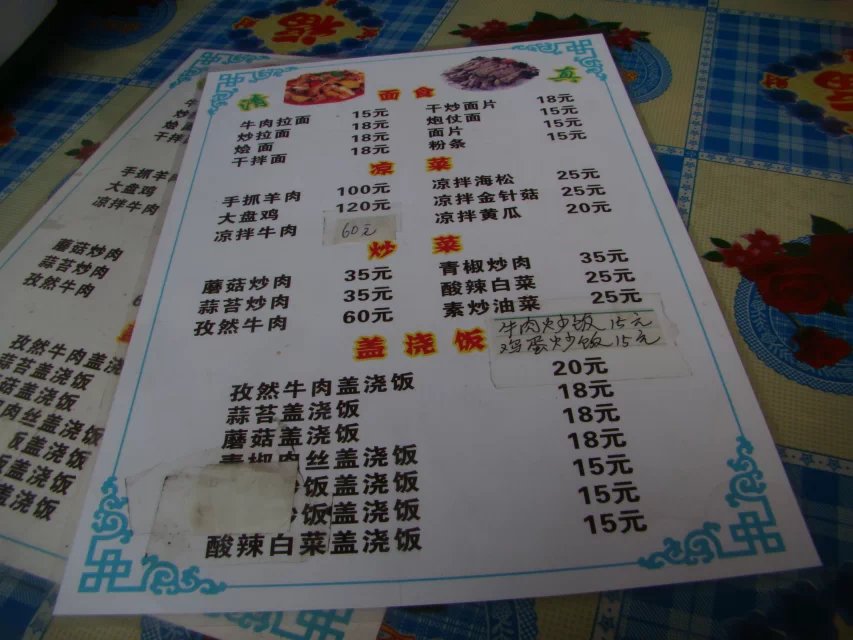 清 面食 真
牛肉拉面 15元 干炒面片 18元
炒拉面 18元 炮仗面 15元
烩面 18元 面片 15元
干拌面 粉条
凉 菜
手抓羊肉 100元 凉拌海松 25元
大盘鸡 120元 凉拌金针菇 25元
凉拌牛肉 60元 凉拌黄瓜 20元
炒 菜
蘑菇炒肉 35元 青椒炒肉 35元
蒜苔炒肉 35元 酸辣白菜 25元
孜然牛肉 60元 素炒油菜 25元
牛肉炒饭 15元
鸡蛋炒饭 15元
盖浇饭
孜然牛肉盖浇饭 20元
蒜苔盖浇饭 18元
蘑菇盖浇饭 18元
青椒肉丝盖浇饭 18元
饭盖浇饭 15元
饭盖浇饭 15元
酸辣白菜盖浇饭 15元
手抓羊
大盘鸡
凉拌牛肉
蘑菇炒肉
蒜苔炒肉
孜然牛肉
孜然牛肉盖浇
蒜苔盖浇饭
菇盖浇饭
肉丝盖浇饭
饭盖浇饭
盖浇饭
盖浇饭